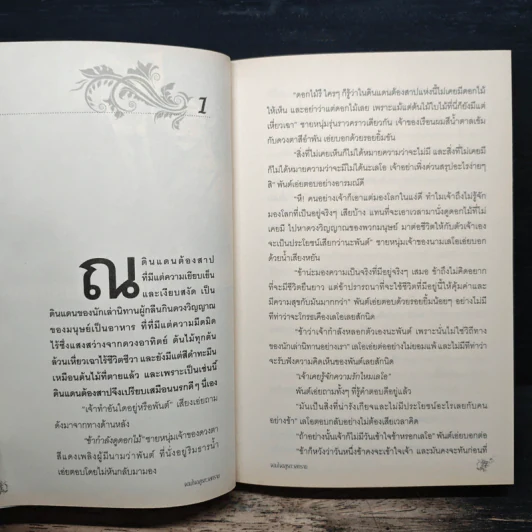 1
ณ ดินแดนต้องสาป
ที่มีแต่ความเยียบเย็น
และเงียบสงัด เป็น
ดินแดนของนักเล่านิทานผู้กลืนกินดวงวิญญาณ
ของมนุษย์เป็นอาหาร ที่ที่มีแต่ความมืดมิด
ไร้ซึ่งแสงสว่างจากดวงอาทิตย์ ต้นไม้ทุกต้น
ล้วนเหี่ยวเฉาไร้ซึ่งชีวิตชีวา และยังมีแต่สีดำทะมึน
เหมือนต้นไม้ที่ตายแล้ว และเพราะเป็นเช่นนี้
ดินแดนต้องสาปจึงเปรียบเสมือนนรกดีๆ นี่เอง
“เจ้าทำอันใดอยู่หรือพันต์” เสียงเอ่ยถาม
ดังมาจากทางด้านหลัง
“ข้ากำลังดูดอกไม้” ชายหนุ่มเจ้าของดวงตา
สีแดงเพลิงผู้มีนามว่าพันต์ ที่นั่งอยู่ริมธารน้ำ
เอ่ยตอบโดยไม่หันกลับมามอง
“ดอกไม้รึ ใครๆ ก็รู้ว่าในดินแดนต้องสาปแห่งนี้ไม่เคยมีดอกไม้
ให้เห็น และอย่าว่าแต่ดอกไม้เลย เพราะแม้แต่ต้นไม้ใบไม้ที่นี่ก็ยังมีแต่
เหี่ยวเฉา” ชายหนุ่มรุ่นราวคราวเดียวกัน เจ้าของเรือนผมสีน้ำตาลเข้ม
กับดวงตาสีอำพัน เอ่ยบอกด้วยรอยยิ้มขัน
“สิ่งที่ไม่เคยเห็นก็ไม่ได้หมายความว่าจะไม่มี และสิ่งที่ไม่เคยมี
ก็ไม่ได้หมายความว่าจะมีไม่ได้นะเลโอ เจ้าอย่าเพิ่งด่วนสรุปอะไรง่ายๆ
สิ” พันต์เอ่ยตอบอย่างอารมณ์ดี
“หึ! คนอย่างเจ้าก็เอาแต่มองโลกในแง่ดี ทำไมเจ้าถึงไม่รู้จัก
มองโลกที่เป็นอยู่จริงๆ เสียบ้าง แทนที่จะเอาเวลามานั่งดูดอกไม้ที่ไม่
เคยมี ไปหาดวงวิญญาณของพวกมนุษย์ มาต่อชีวิตให้กับตัวเจ้าเอง
จะเป็นประโยชน์เสียกว่านะพันต์” ชายหนุ่มเจ้าของนามเลโอเอ่ยบอก
ด้วยน้ำเสียงหยัน
“ข้าน่ะมองความเป็นจริงที่มีอยู่จริงๆ เสมอ ข้าถึงไม่คิดอยาก
ที่จะมีชีวิตยืนยาว แต่ข้าปรารถนาที่จะใช้ชีวิตที่มีอยู่นี้ให้คุ้มค่าและ
มีความสุขกับมันมากกว่า” พันต์เอ่ยตอบด้วยรอยยิ้มน้อยๆ อย่างไม่มี
ทีท่าว่าจะโกรธเคืองเลโอเลยสักนิด
“ข้าว่าเจ้ากำลังหลอกตัวเองนะพันต์ เพราะนั่นไม่ใช่วิถีทาง
ของนักเล่านิทานอย่างเรา” เลโอเอ่ยต่ออย่างไม่ยอมแพ้ และไม่มีทีท่าว่า
จะรับฟังความคิดเห็นของพันต์เลยสักนิด
“เจ้าเคยรู้จักความรักไหมเลโอ”
พันต์เอ่ยถามทั้งๆ ที่รู้คำตอบดีอยู่แล้ว
“มันเป็นสิ่งที่น่ารังเกียจและไม่มีประโยชน์อะไรเลยกับคน
อย่างข้า” เลโอตอบกลับอย่างไม่ต้องเสียเวลาคิด
“ถ้าอย่างนั้นเจ้าก็ไม่มีวันเข้าใจข้าหรอกเลโอ” พันต์เอ่ยบอกต่อ
“ข้าก็หวังว่าวันหนึ่งเจ้าคงจะเข้าใจข้า และมันคงจะทันก่อนที่